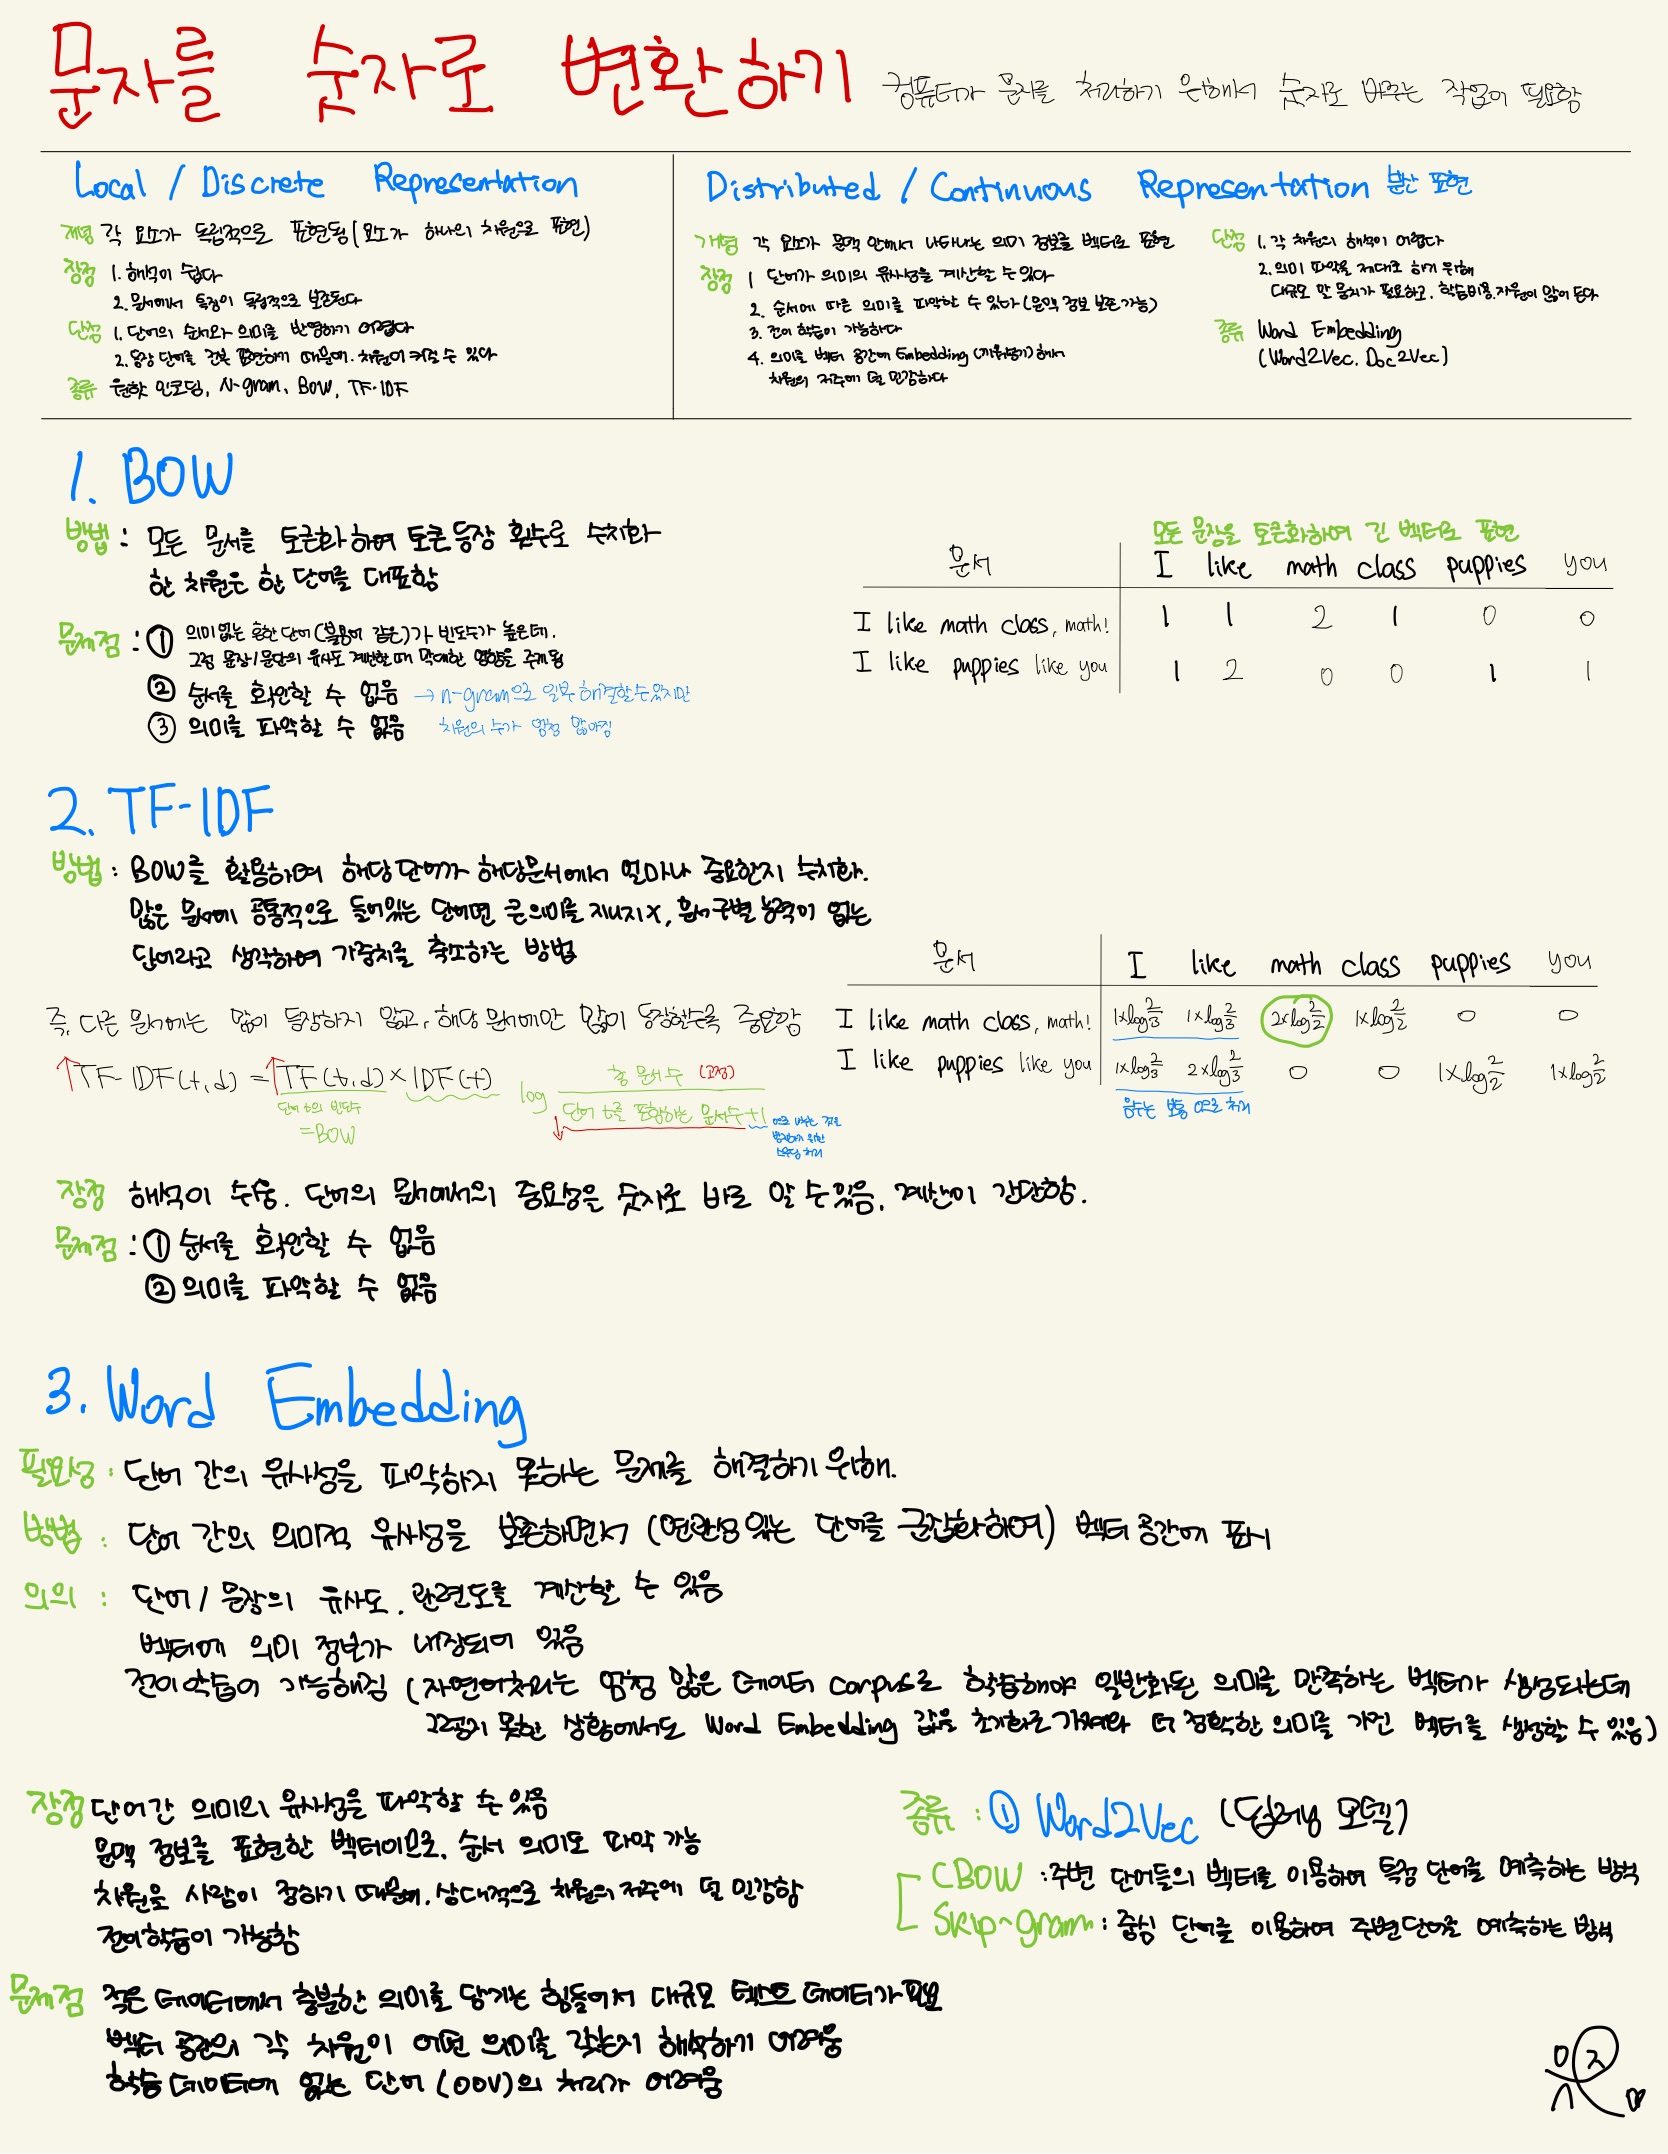 문자를 숫자로 변환하기 컴퓨터가 문자를 처리하기 위해서 숫자로 바꾸는 작업이 필요함
Local / Discrete Representation
개념 각 요소가 독립적으로 표현됨 (요소가 하나의 차원으로 표현)
장점 1. 해석이 쉽다
2. 문서에서 특징이 독립적으로 보존된다
단점 1. 단어의 순서와 의미를 반영하기 어렵다
2. 등장 단어를 전부 표현하기 때문에. 차원이 커질 수 있다
종류 원핫 인코딩, N-gram, BOW, TF-IDF
Distributed / Continuous Representation 분산 표현
개념 각 요소가 문맥 안에서 나타나는 의미 정보를 벡터로 표현
장점 1 단어가 의미의 유사성을 계산할 수 있다
2. 순서에 따른 의미를 파악할 수 있다 (문맥 정보 보존 가능)
3. 전이 학습이 가능하다
4. 의미를 벡터 공간에 Embedding (끼워넣기) 해서
차원의 저주에 덜 민감하다
단점 1. 각 차원의 해석이 어렵다
2. 의미 파악을 제대로 하기 위해
대규모 말뭉치가 필요하고, 학습비용, 자원이 많이 든다
종류 Word Embedding
(Word2Vec. Doc2Vec)
1. BOW
방법 : 모든 문서를 토큰화 하여 토큰 등장 횟수로 수치화
한 차원은 한 단어를 대표함
문제점 : ① 의미없는 흔한 단어 (불용어 같은)가 빈도수가 높은데.
그럼 문장/문단의 유사도 계산할 때 막대한 영향을 주게됨
② 순서를 확인할 수 없음 → n-gram으로 일부 해결할 수 있지만
③ 의미를 파악할 수 없음 차원의 수가 엄청 많아짐
모든 문장을 토큰화하여 긴 벡터로 표현
문서 I like math class puppies you
I like math class, math! 1 1 2 1 0 0
I like puppies like you 1 2 0 0 1 1
2. TF-IDF
방법 : BOW를 활용하여 해당 단어가 해당문서에서 얼마나 중요한지 수치화.
많은 문서에 공통적으로 들어있는 단어면 큰 의미를 지니지X, 문서 구별 능력이 없는
단어라고 생각하여 가중치를 축소하는 방법
즉, 다른 문서에는 많이 등장하지 않고, 해당 문서에만 많이 등장할수록 중요함
↑TF-IDF(t,d) = ↑TF(t,d) × IDF(t) log 총 문서 수 (고정)
단어 t를 포함하는 문서수 +1
단어 t의 빈도수
=BOW
0으로 나누는 것을
방지하기 위한
스무딩 처리
문서 I like math class puppies you
I like math class, math! 1×log2/3 1×log2/3 2×log2/2 1×log2/2 0 0
I like puppies like you 1×log2/3 2×log2/3 0 0 1×log2/2 1×log2/2
음수는 보통 0으로 처리
장점 해석이 수월. 단어의 문서에서의 중요성을 숫자로 바로 알 수 있음, 계산이 간단함.
문제점 : ① 순서를 확인할 수 없음
② 의미를 파악할 수 없음
3. Word Embedding
필요성 : 단어 간의 유사성을 파악하지 못하는 문제를 해결하기 위해.
방법 : 단어 간의 의미적 유사성을 보존하면서 (연관성 있는 단어를 군집화하여) 벡터 공간에 표시
의의 : 단어/문장의 유사도, 관련도를 계산할 수 있음
벡터에 의미 정보가 내장되어 있음
전이학습이 가능해짐 (자연어처리는 엄청 많은 데이터 corpus로 학습해야 일반화된 의미를 만족하는 벡터가 생성되는데
그렇지 못한 상황에서도 Word Embedding 값을 초기화로 가져와 더 정확한 의미를 가진 벡터를 생성할 수 있음)
장점 단어간 의미의 유사성을 파악할 수 있음
문맥 정보를 표현한 벡터이므로, 순서 의미도 파악 가능
차원을 사람이 정하기 때문에, 상대적으로 차원의 저주에 덜 민감함
전이학습이 가능함
문제점 적은 데이터에서 충분한 의미를 담기는 힘들어서 대규모 텍스트 데이터가 필요
벡터 공간의 각 차원이 어떤 의미를 갖는지 해석하기 어려움
학습 데이터에 없는 단어 (OOV)의 처리가 어려움
종류 : ① Word2Vec (딥러닝 모델)
CBOW : 주변 단어들의 벡터를 이용하여 특정 단어를 예측하는 방식
Skip-gram : 중심 단어를 이용하여 주변단어로 예측하는 방식